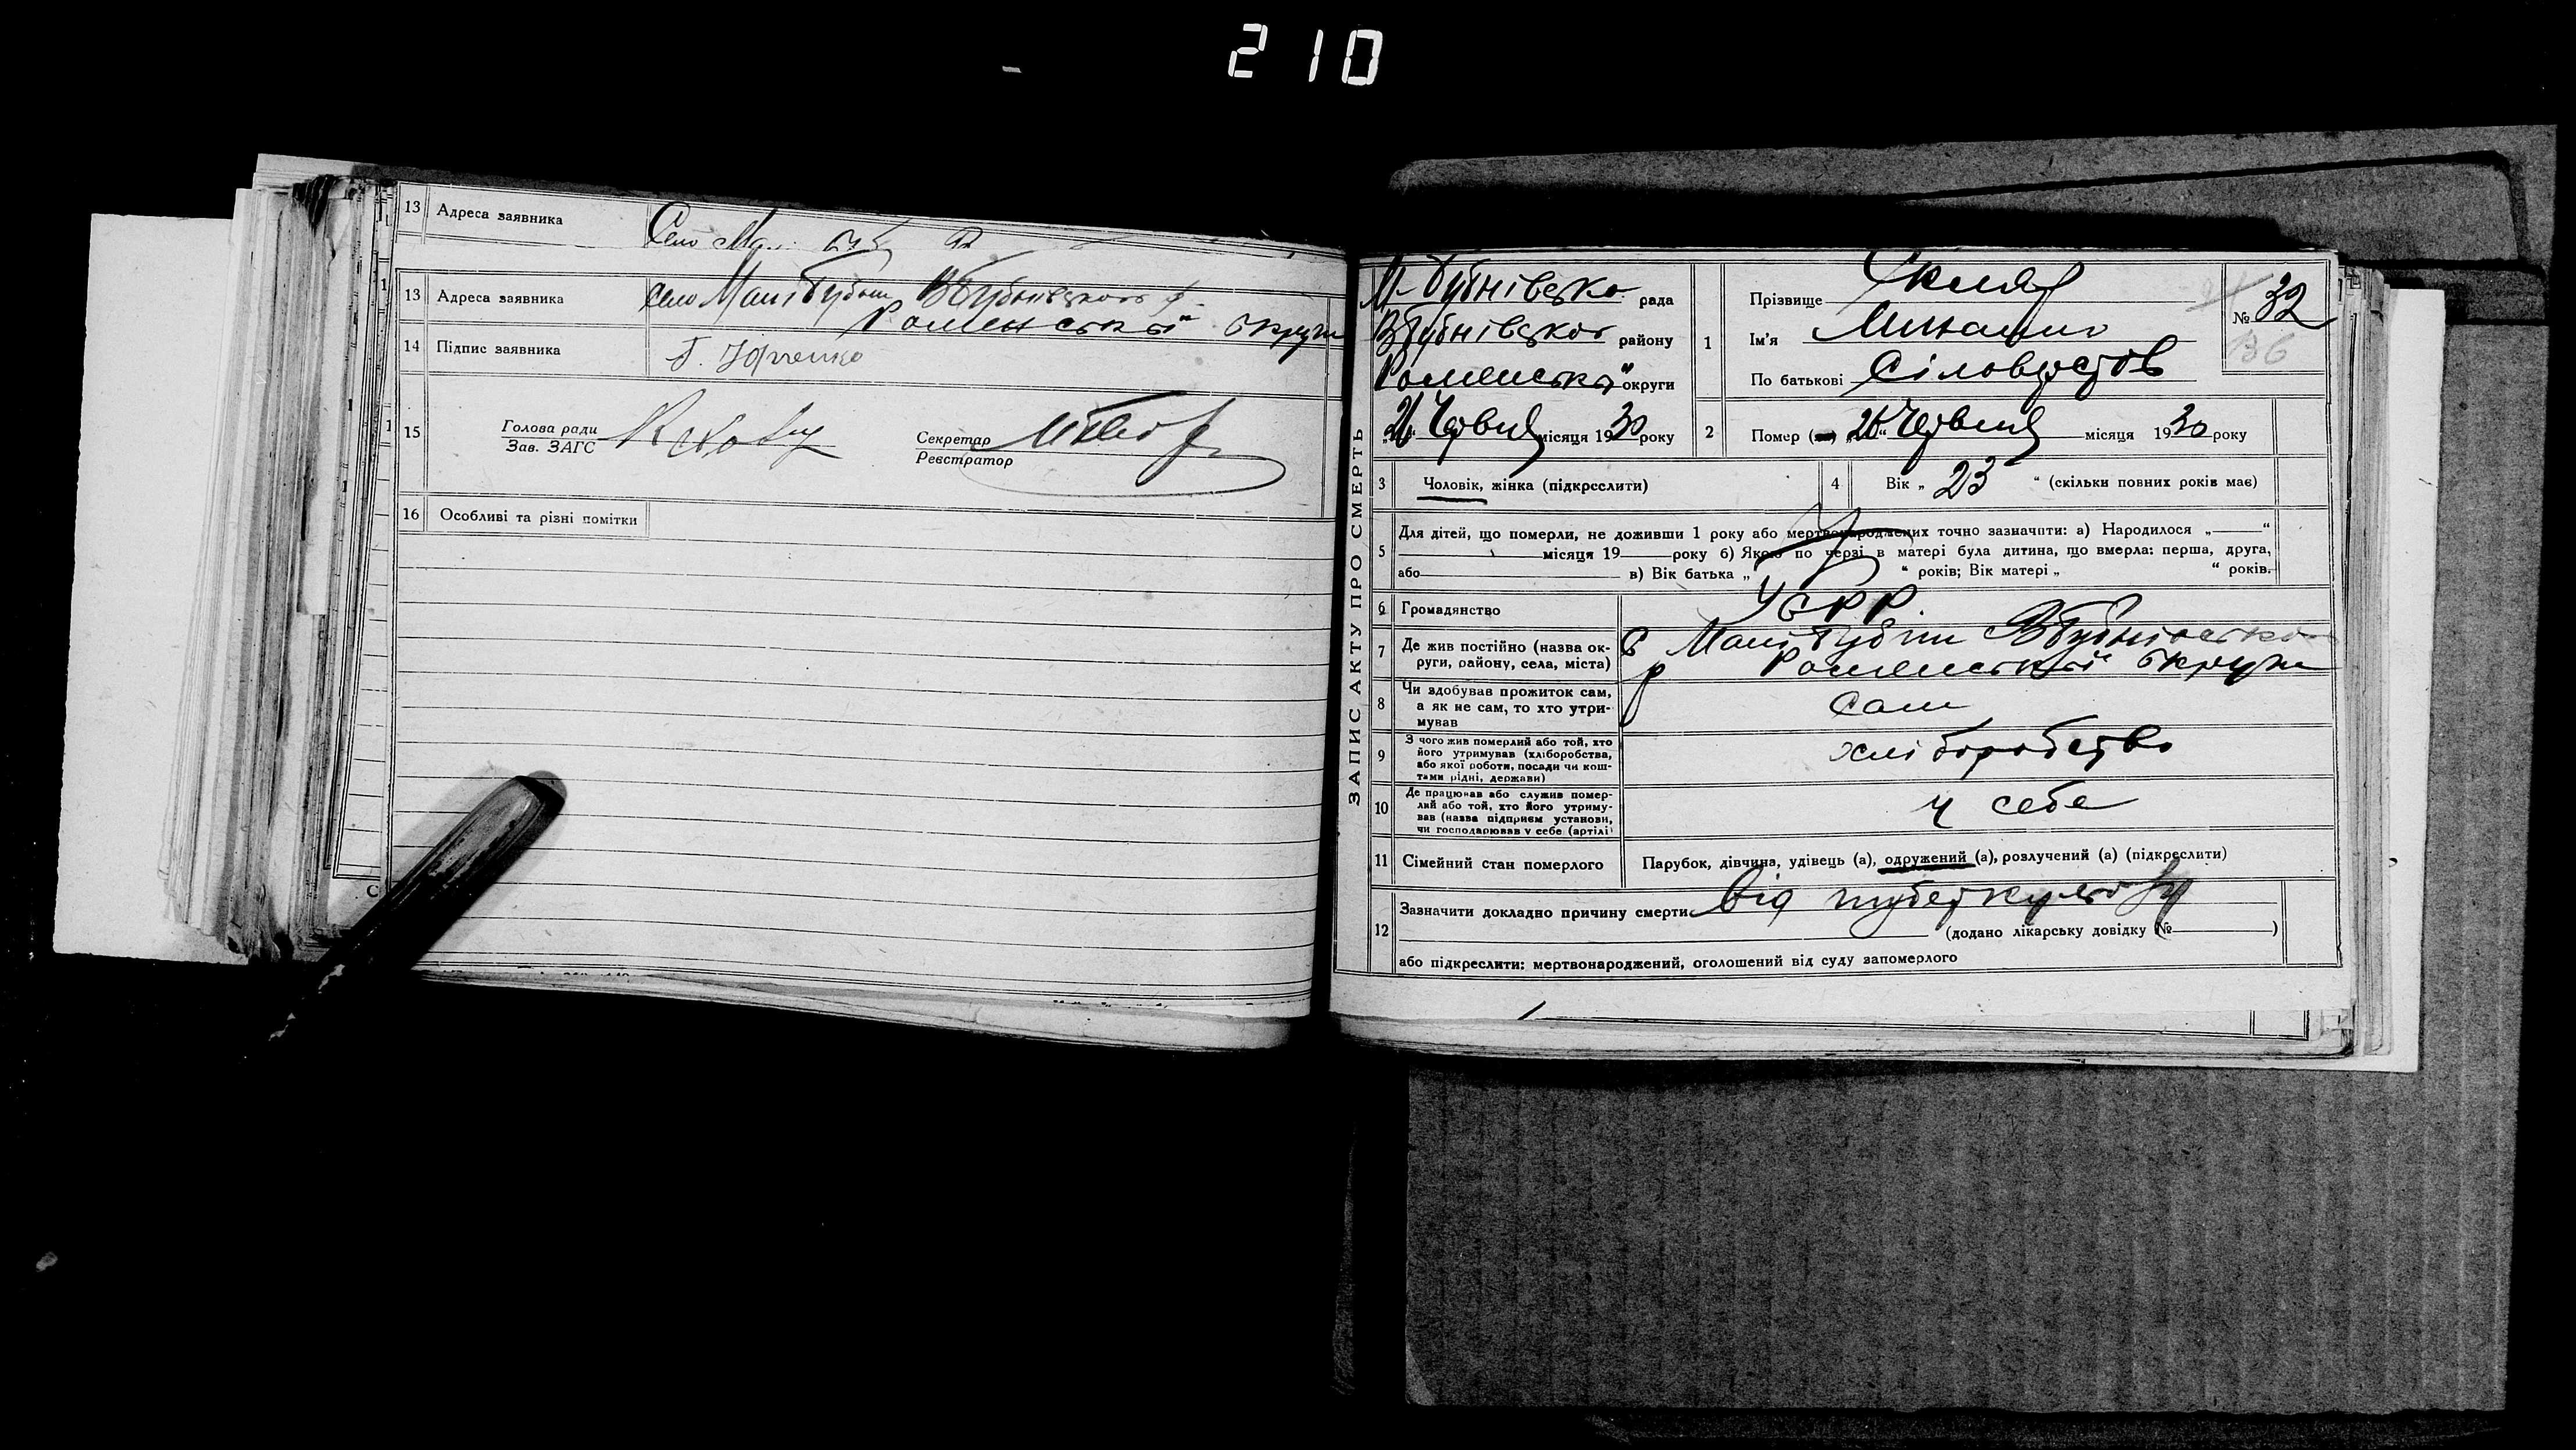 210
13 Адреса заявника Село
13 Адреса заявника село Малі Бубни ВБубнівського р.
Роменської округи
14 Підпис заявника Г. Юрченко
15 Голова ради
Зав. ЗАГС
Секретар
Реєстратор
16 Особливі та різні помітки
ЗАПИС АКТУ ПРО СМЕРТЬ
М-Бубнівська рада
ВБубнівського району
Роменської округи
„21“ Червня місяця 1930 року
1 Прізвище Скляр
Ім'я Михайло
По батькові Сіловестов
№ 32
136
2 Помер (ла) „20“ Червня місяця 1930 року
3 Чоловік, жінка (підкреслити)
4 Вік „ 23 “ (скільки повних років має)
5 Для дітей, що померли, не доживши 1 року або мертвонароджених точно зазначити: а) Народилося „ “
місяця 19 року б) Якою по черзі в матері була дитина, що вмерла: перша, друга,
або в) Вік батька „ “ років; Вік матері „ “ років.
6 Громадянство УСРР.
7 Де жив постійно (назва ок-
руги, району, села, міста)
С Малі Бубни ВБубнівсько
р Роменської округи
8 Чи здобував прожиток сам,
а як не сам, то хто утри-
мував
Сам
9 З чого жив померлий або той, хто
його утримував (хліборобства,
або якої роботи, посади чи кош-
тами рідні, держави)
хліборобство
10 Де працював або служив помер-
лий або той, хто його утриму-
вав (назва підприєм установи,
чи господарював у себе (артілі)
у себе
11 Сімейний стан померлого Парубок, дівчина, удівець (а), одружений (а), розлучений (а) (підкреслити)
12 Зазначити докладно причину смерти від туберкульозу
(додано лікарську довідку № )
або підкреслити: мертвонароджений, оголошений від суду запомерлого